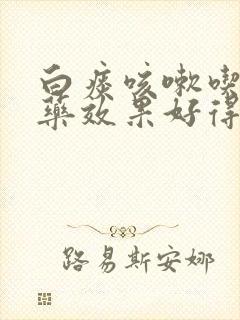 白痰咳嗽喫
藥效果好得
路易斯安娜